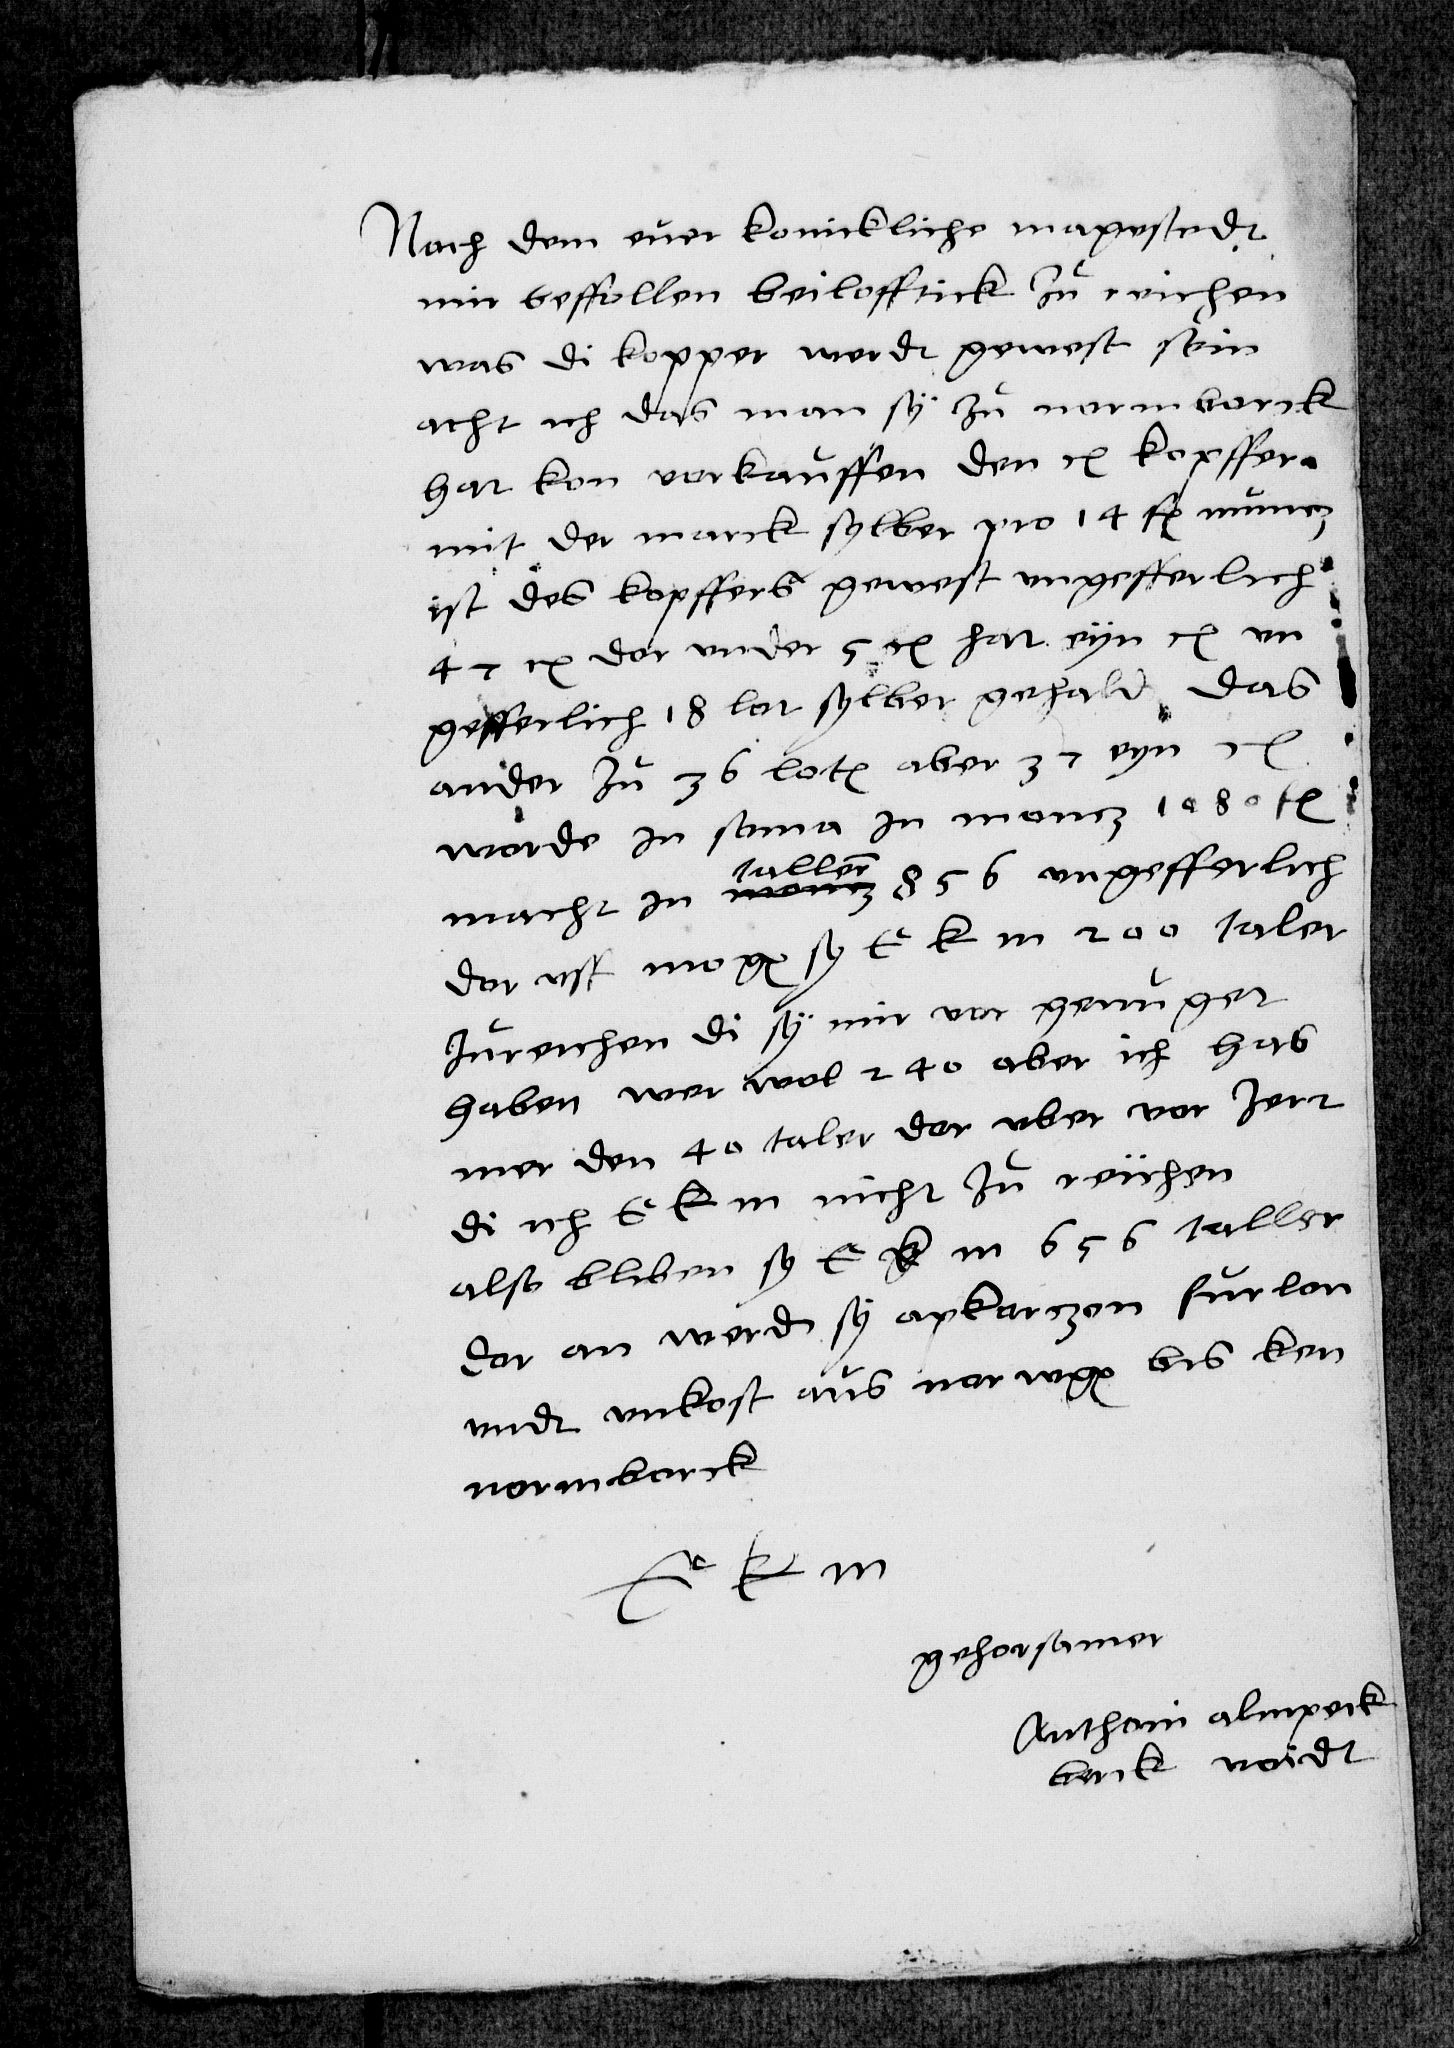 Nach dem euer konickliche mayestedt
mir beffollen beilofftick zu reichen
was di kopper werdt gewest sein
acht ich das man sÿ zu normborck
hat kon vorkauffen den ct kopffer
mit der marck sylber pro 14 fl muncz
ist des kopffers gewest vngefferlich
47 ct dor vnder 5 ct hat eÿn ct vn
gefferlich 18 lot sylber gehald das
ander zu 36 lot aber 37 eyn ct
worde in soma in moncz 1080 fl
macht in taller 856 vngefferlich
dor vff mog sy E K M 200 taler
zureichen di sÿ mir vor genuget
haben wer wol 240 aber ich hab
mer den 40 taler dor vber vor zert
di ich E K M nicht zu reichen
also bliben sy E K M 656 taller
dor an werdn sÿ apkorczen furlon
vndt vnkost aus norweg bis ken
normborck
E K M
gehorsamer
Anthoni alnpeck
berck voidt